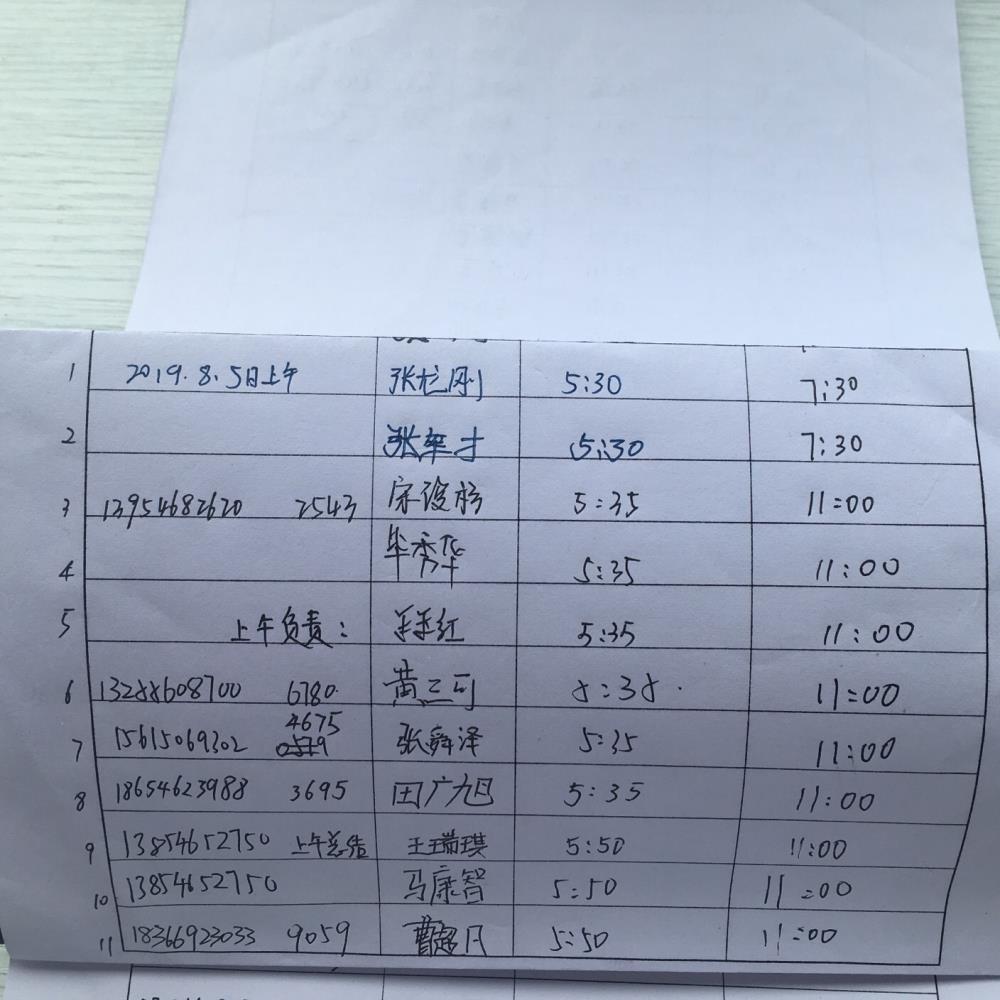 1 2019.8.5日上午 张栏刚 5:30 7:30
2 张军才 5:30 7:30
3 13954682620 2543 宋俊杉 5:35 11:00
4 毕秀华 5:35 11:00
5 上午负责: 红 5:35 11:00
6 13288608700 6780 黄三司 5:35 11:00
4675
7 15615069302 张舜泽 5:35 11:00
8 18654623988 3695 田广旭 5:35 11:00
9 13854652750 上午总结 王瑞琪 5:50 11:00
10 13854652750 马康智 5:50 11:00
11 18366923033 9059 曹超凡 5:50 11:00